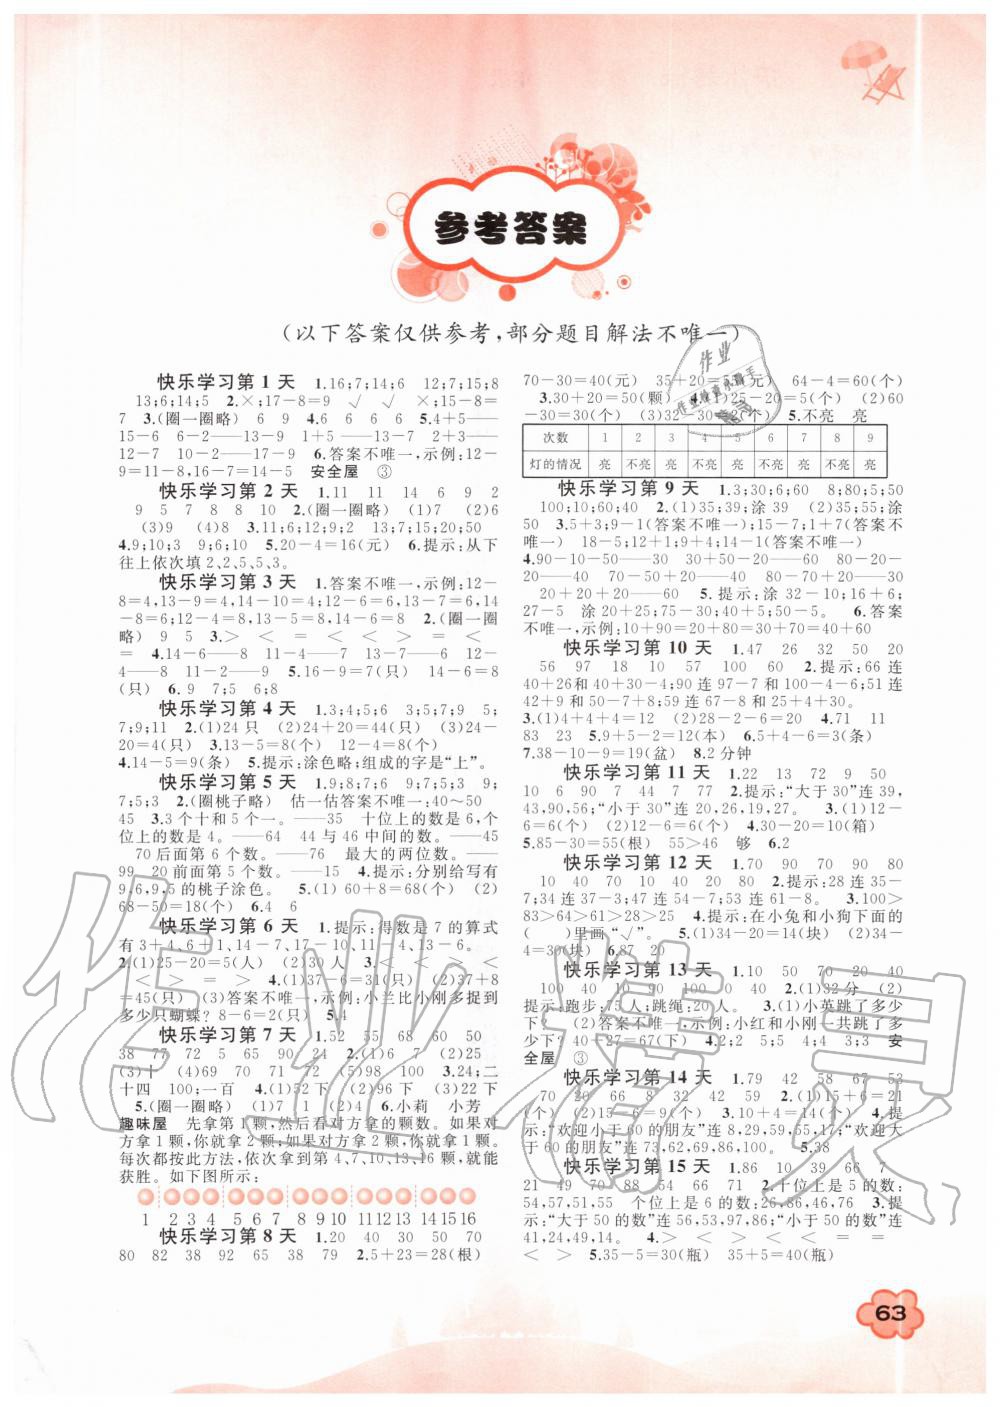 参考答案
(以下答案仅供参考,部分题目解法不唯一)
快乐学习第 1 天 1.16;7;14;6 12;7;15;8
13;6;14;5 2.×;17-8=9 √ √ ×;15-8=
7 3.(圈一圈略) 6 9 4.6 6 6 6 5.4+5——
15-6 6-2——13-9 1+5——13-7 2+3——
12-7 10-2——17-9 6.答案不唯一,示例:12-
9=11-8,16-7=14-5 安全屋 ③
快乐学习第 2 天 1.11 11 14 6 9 2
9 5 7 8 8 10 2.(圈一圈略) (1)7 (2)6
(3)9 (4)8 3.11;6;12;9;2 13;7;15;20;50
4.9;10;3 9;6;10 5.20-4=16(元) 6.提示:从下
往上依次填 2、2、5、5、3。
快乐学习第 3 天 1.答案不唯一,示例:12-
8=4,13-9=4,14-10=4;12-6=6,13-7=6,14
-8=6;12-4=8,13-5=8,14-6=8 2.(圈一圈
略) 9 5 3.> < = < < > = <
= 4.14-6——8 11-4——7 13-7——6 12-
4——8 11-2——9 5.16-9=7(只) 14-6=8
(只) 6.9 7;5 6;8
快乐学习第 4 天 1.3;4;5;6 3;5;7;9 5;
7;9;11 2.(1)24 只 (2)24+20=44(只) (3)24-
20=4(只) 3.13-5=8(个) 12-4=8(个)
4.14-5=9(条) 5.提示:涂色略;组成的字是“上”。
快乐学习第 5 天 1.9;8;7;6 9;7;5;3 9;
7;5;3 2.(圈桃子略) 估一估答案不唯一:40~50
45 3.3 个十和 5 个一。——35 十位上的数是 6,个
位上的数是 4。——64 44 与 46 中间的数。——45
70 后面第 6 个数。——76 最大的两位数。——
99 20 前面第 5 个数。——15 4.提示:分别给写有
9,6,9,5 的桃子涂色。 5.(1)60+8=68(个) (2)
68-50=18(个) 6.4 6
快乐学习第 6 天 1.提示:得数是 7 的算式
有 3+4、6+1、14-7、17-10、11-4、13-6。
2.(1)25-20=5(人) (2)30 人 3.< < > <
< > = > 4.(1)37-6=31(只) (2)37+8
=45(只) (3)答案不唯一,示例:小兰比小刚多捉到
多少只蝴蝶? 8-6=2(只) 5.4
快乐学习第 7 天 1.52 55 68 60 50
38 77 72 5 65 90 24 2.(1)6 7 (2)25
(3)十 (4)69 70 71 100 3.24;二
十四 100;一百 4.(1)52 下 (2)96 下 (3)22 下
5.(圈一圈略) (1)7 1 (2)4 6.小莉 小芳
趣味屋 先拿 1 颗,然后看对方拿的颗数。如果对
方拿 1 颗,你就拿 2 颗;如果对方拿 2 颗,你就拿 1 颗。
每次都按此方法,依次拿到第 4、7、10、13、16 颗,就能
获胜。如下图所示:
1 2 3 4 5 6 7 8 9 10 11 12 13 14 15 16
快乐学习第 8 天 1.20 40 30 50 70
80 82 38 92 65 38 79 2.5+23=28(根)
70-30=40(元) 35+20=55(元) 64-4=60(个)
3.30+20=50(颗) 4.(1)25-20=5(个) (2)60
-30=30(个) (3)32-30=2(个) 5.不亮 亮
次数 1 2 3 4 5 6 7 8 9
灯的情况 亮 不亮 亮 不亮 亮 不亮 亮 不亮 亮
快乐学习第 9 天 1.3;30;6;60 8;80;5;50
100;10;60;40 2.(1)35;39;涂 39 (2)35;55;涂
50 3.5+3;9-1(答案不唯一);15-7;1+7(答案不
唯一) 18-5;12+1;9+4;14-1(答案不唯一)
4.90-10-50——30 30+50-20——60 80-20-
20——40 70-50+20——40 80-70+20——30
20+20+20——60 5.提示:涂 32-10;16+6;
27-5 涂 20+25;75-30;40+5;50-5。 6.答案
不唯一,示例:10+90=20+80=30+70=40+60
快乐学习第 10 天 1.47 26 32 50 20
56 97 18 10 57 100 60 2.提示:66 连
40+26 和 40+30-4;90 连 97-7 和 100-4-6;51 连
42+9 和 50-7+8;59 连 67-8 和 25+4+30。
3.(1)4+4+4=12 (2)28-2-6=20 4.71 11
83 23 5.9+5-2=12(本) 6.5+4-6=3(条)
7.38-10-9=19(盆) 8.2 分钟
快乐学习第 11 天 1.22 13 72 9 50
10 6 90 7 44 7 77 2.提示:“大于 30”连 39,
43,90,56;“小于 30”连 20,26,19,27。 3.(1)12-
6=6(个) (2)12-6=6(个) 4.30-20=10(箱)
5.85-30=55(根) 55>46 够 6.2
快乐学习第 12 天 1.70 90 70 90 80
10 40 70 10 40 20 80 2.提示:28 连 35-
7;34 连 37-3;47 连 54-7;53 连 61-8。 3.100>
83>64>31>28>25 4.提示:在小兔和小狗下面的
( )里画“√”。 5.(1)34-20=14(块) (2)34-
4=30(块) 6.87 20
快乐学习第 13 天 1.10 50 70 20 40
100 40 10 90 100 0 40 2.(1)32 分 (2)
提示:跑步:75 人;跳绳:20 人。 3.(1)小英跳了多少
下? (2)答案不唯一,示例:小红和小刚一共跳了多
少下? 40+27=67(下) 4.2;2 5;5 4;4 3;3 安
全屋 ③
快乐学习第 14 天 1.79 42 58 67 53
70 20 66 8 32 42 55 2.(1)15+6=21
(个) (2)15-6=9(个) 3.10+4=14(个) 4.提
示:“欢迎小于 60 的朋友”连 8,29,59,55,17;“欢迎大
于 60 的朋友”连 73,62,69,86,100。 5.38
快乐学习第 15 天 1.86 10 39 66 7
21 49 70 88 54 66 71 2.十位上是 5 的数:
54,57,51,55 个位上是 6 的数:26,86,46,76 3.提
示:“大于 50 的数”连 56,53,97,86;“小于 50 的数”连
41,24,49,14。 4.> < > < < = =
< > 5.35-5=30(瓶) 35+5=40(瓶)
63
作业精灵